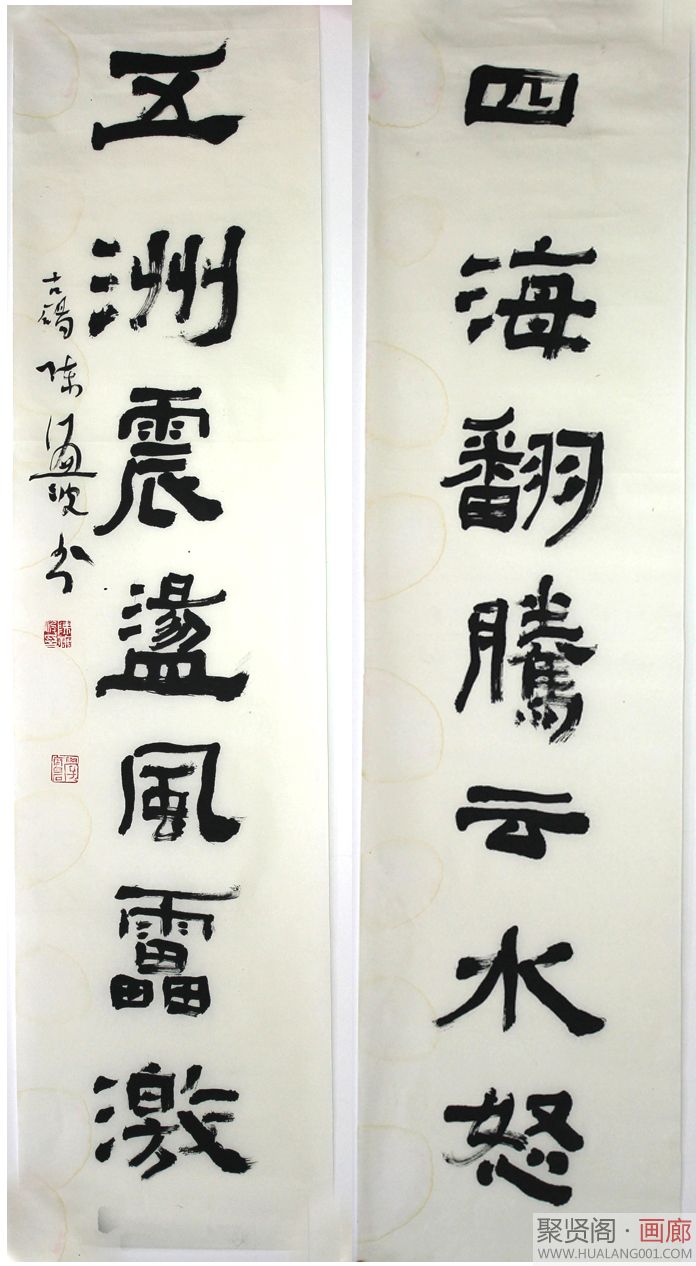 四海翻騰云水怒
五洲震盪風靁激
古錫陳海波书
聚贤阁·画廊
WWW.HUALANG001.COM